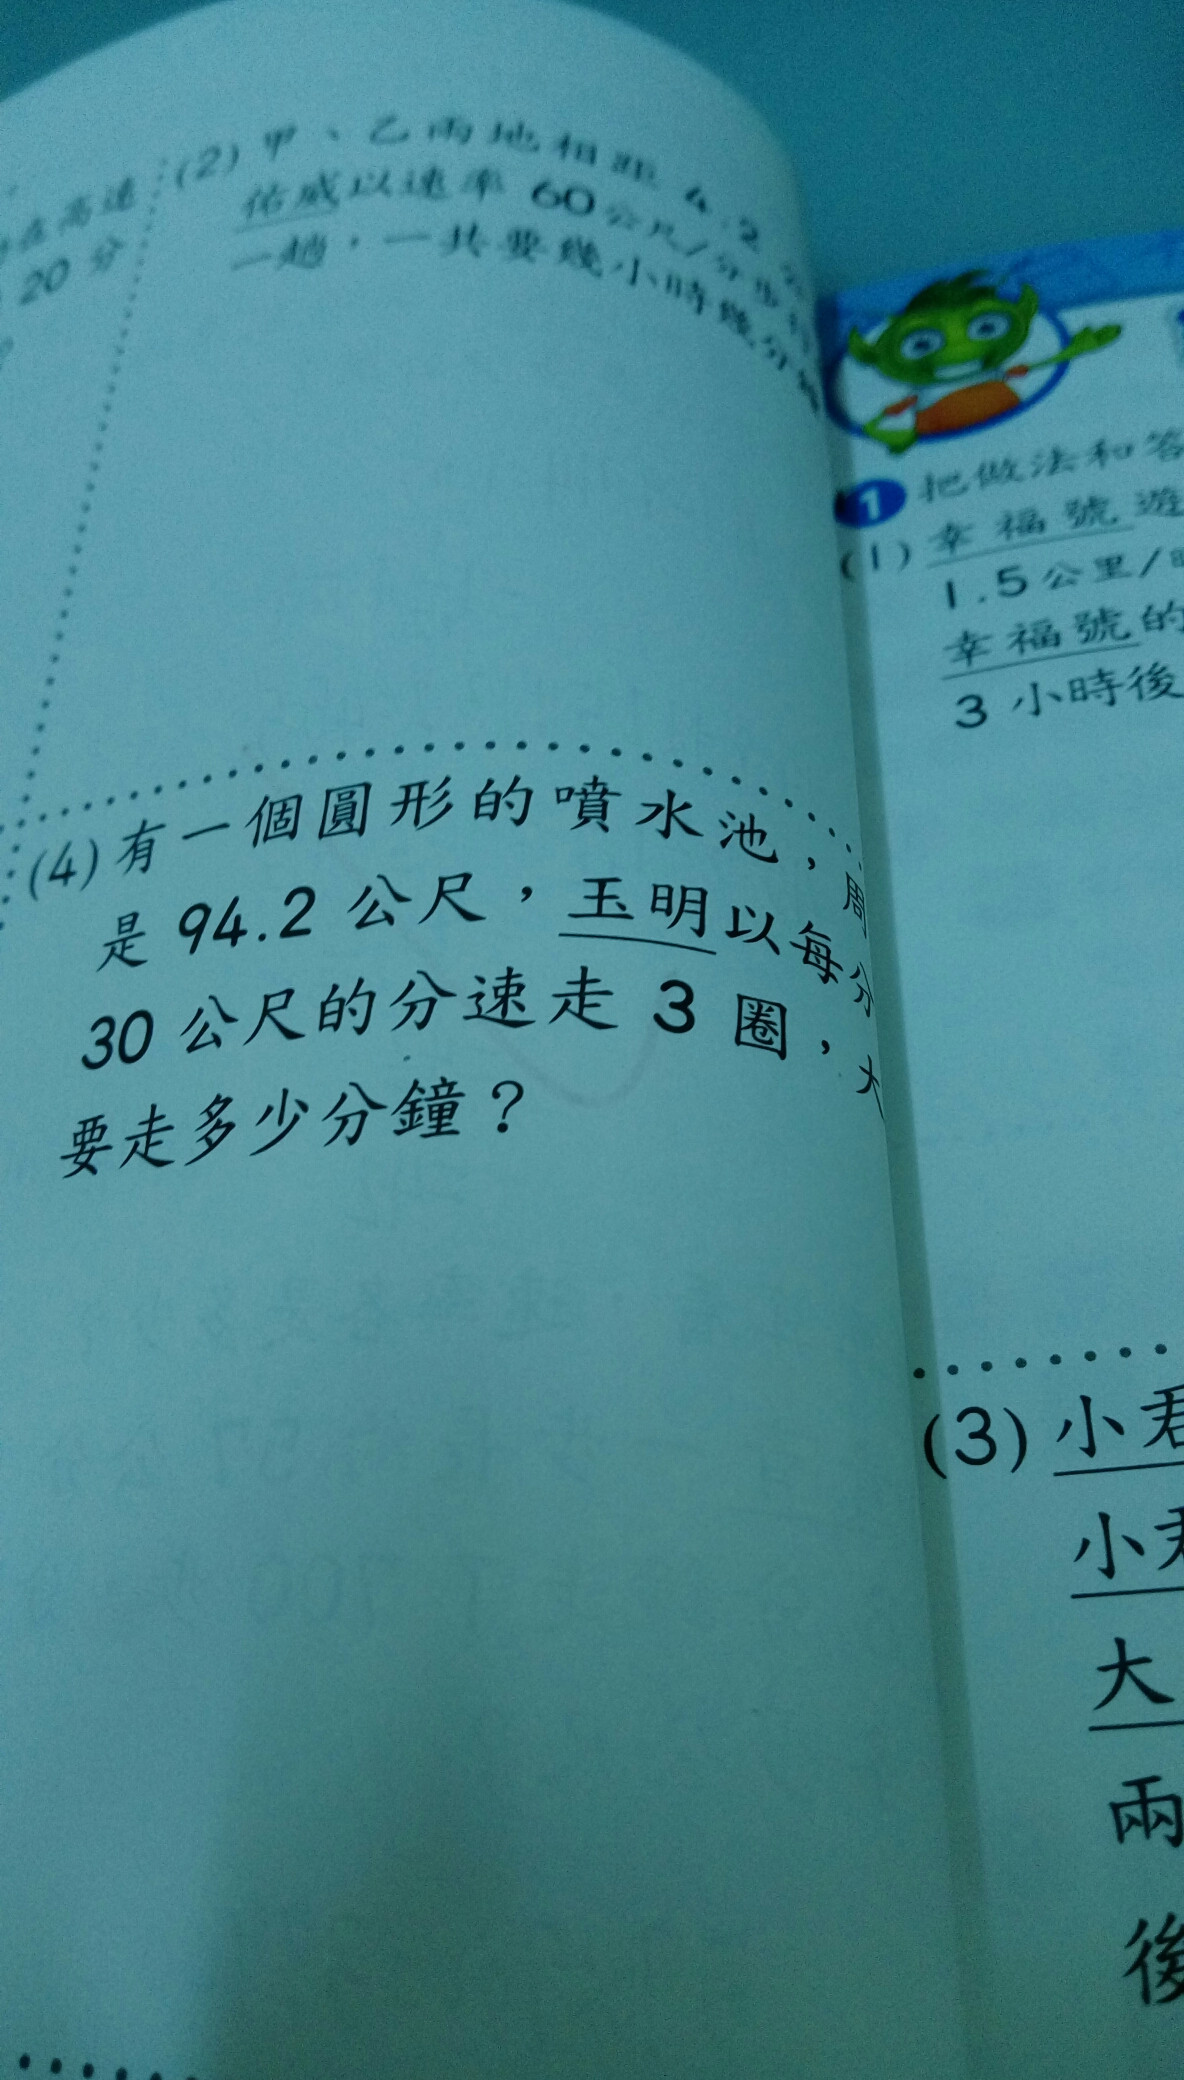 在高速
20 分
(2) 甲、乙兩地相距 4.2
佑威以速率 60 公尺/分步行
一趟，一共要幾小時幾分
(4) 有一個圓形的噴水池，周
是 94.2 公尺，玉明以每分
30 公尺的分速走 3 圈，大
要走多少分鐘？
1 把做法和答
(1) 幸福號遊
1.5 公里/時
幸福號的
3 小時後
(3) 小君
小君
大
兩
後